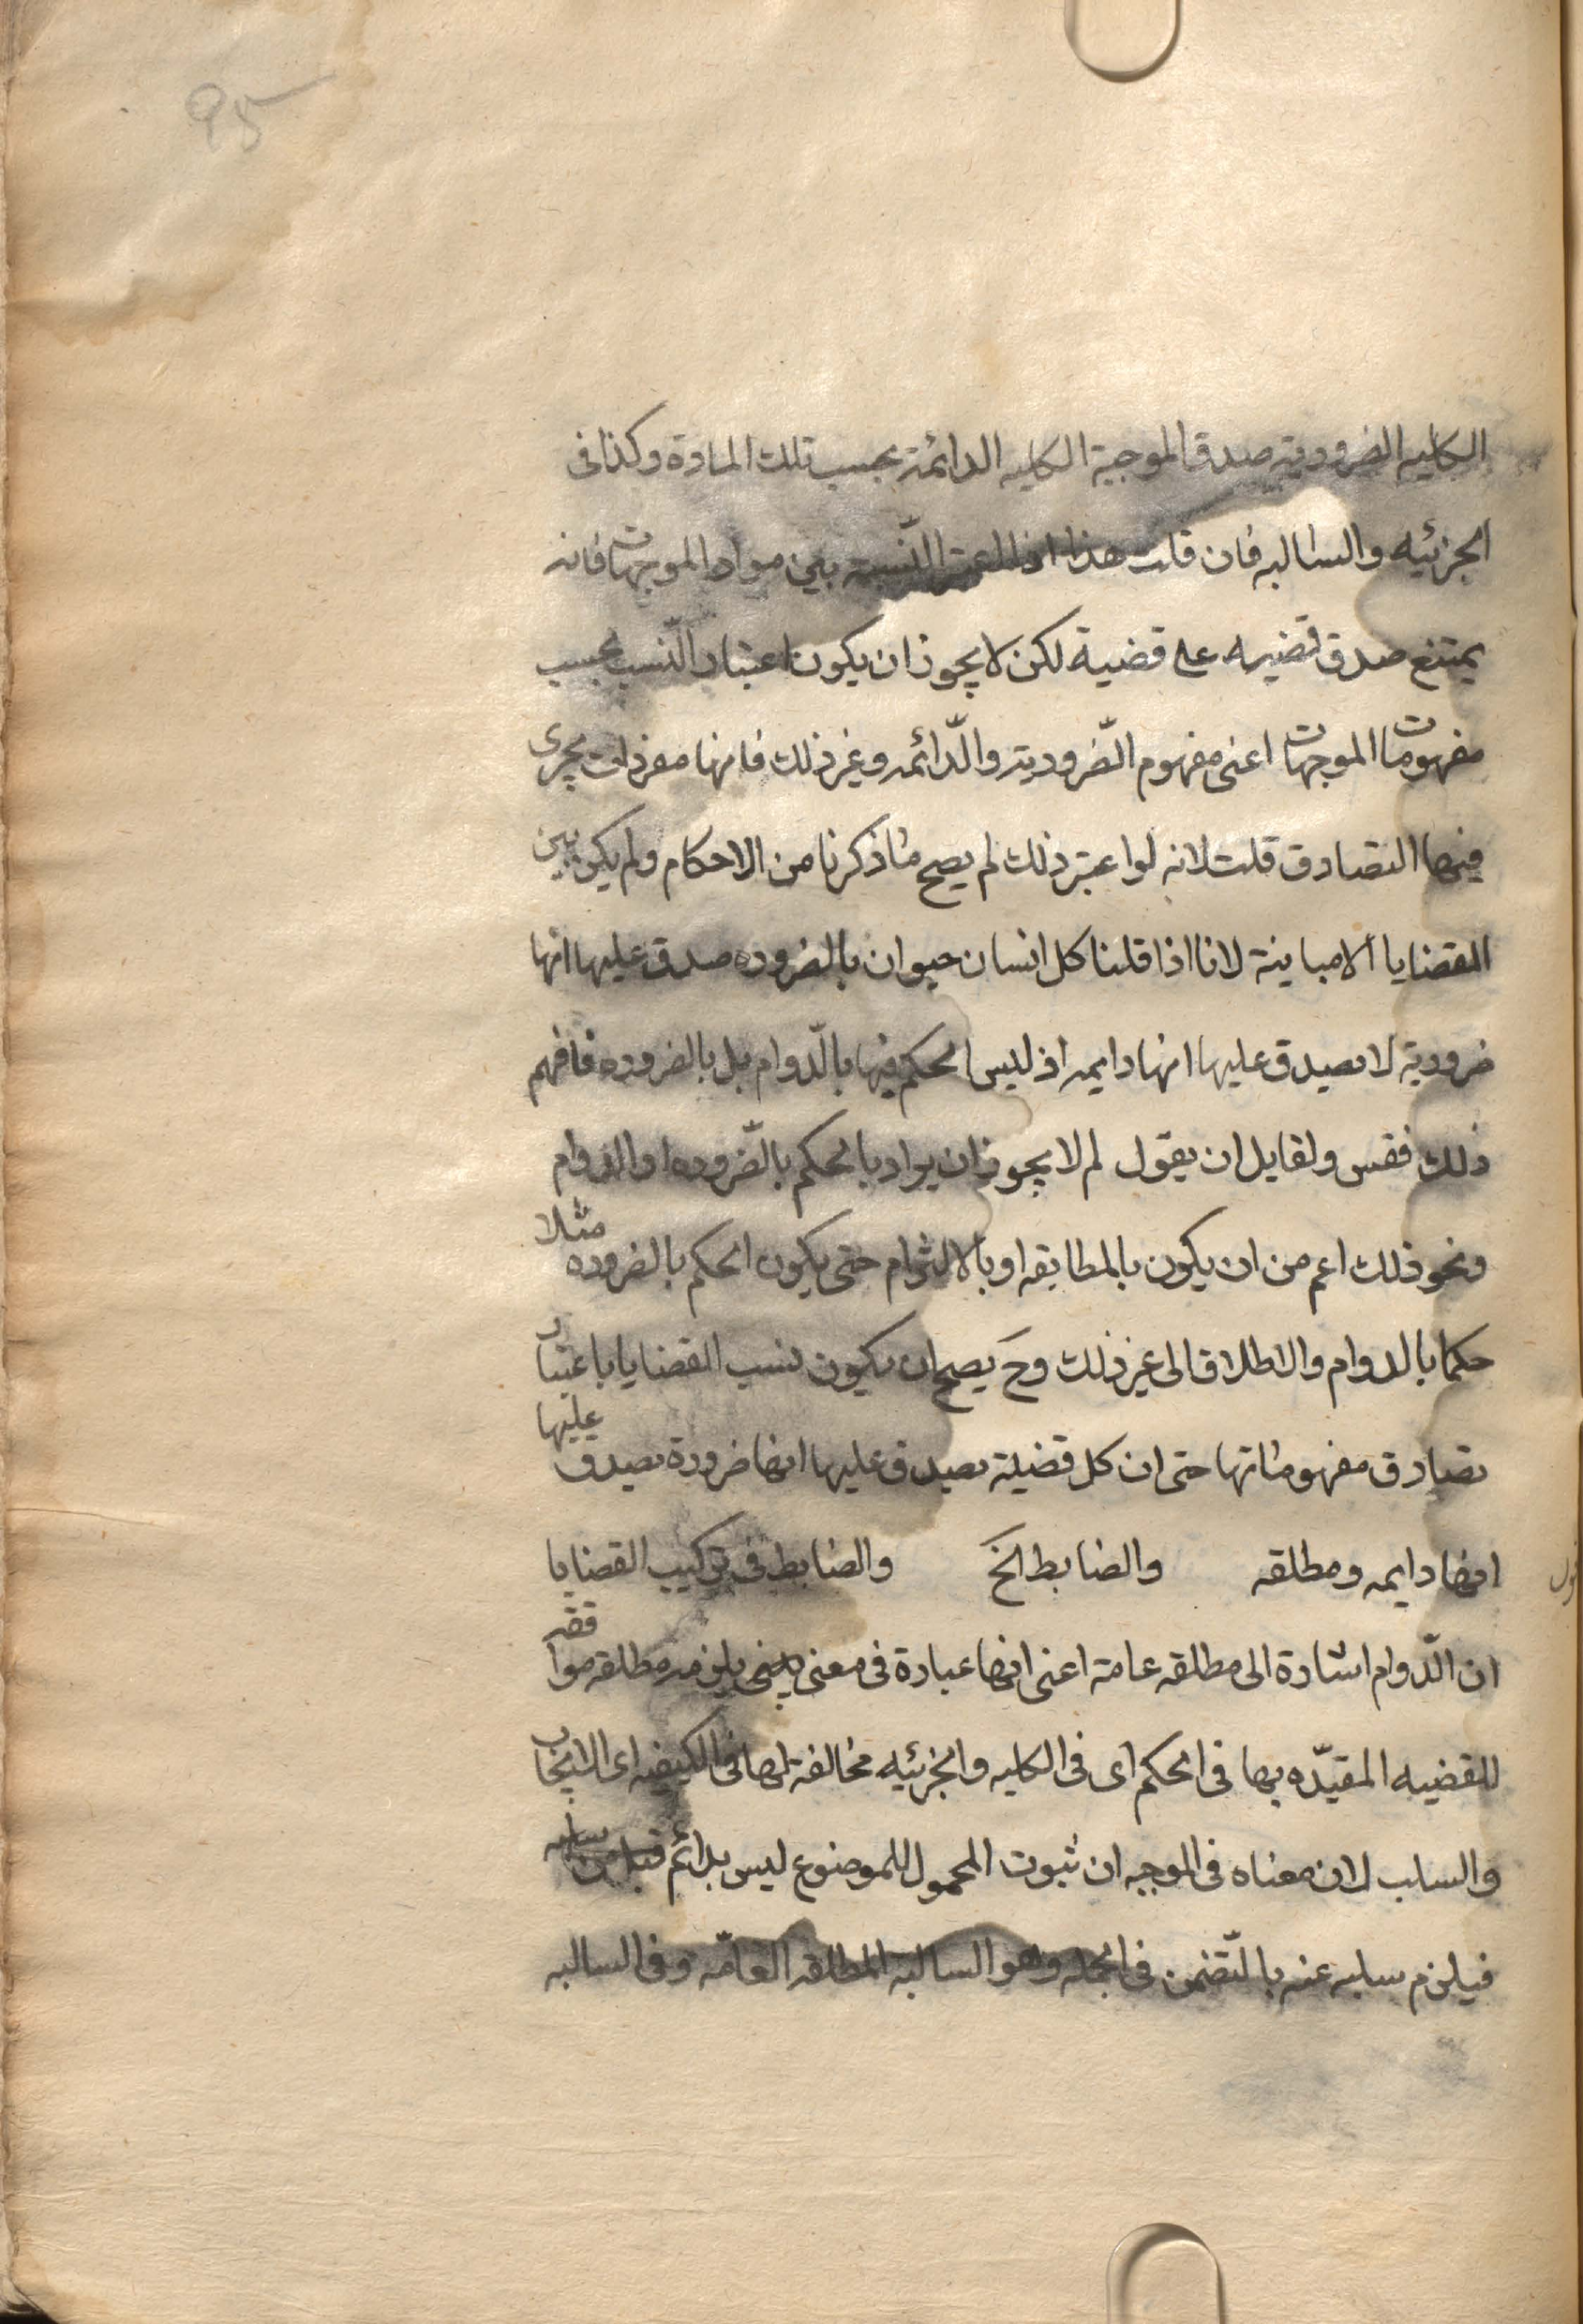 95
الكليه الضروريه صدق الموجبة الكليه الدائمة بحسب تلك المادة وكذا فى
الجزئيه والسالبه فان قلت هذا اذا اعتبر النّسبة بين مواد الموجهات فانه
يمتنع صدق قضيه على قضية لكن لا يجوز ان يكون اعتبار النّسب بحسب
مفهومات الموجهات اعنى مفهوم الضّرورية والدّائمه وغير ذلك فانها مفردات يجرى
فيها التصادق قلت لانه لو اعتبر ذلك لم يصح ما ذكرنا من الاحكام ولم يكن بين
القضايا الا مباينة لانا اذا قلنا كل انسان حيوان بالضروره صدق عليها انها
ضرورية لا يصدق عليها انها دايمه اذ ليس الحكم فيها بالدّوام بل بالضروره فافهم
ذلك فقس ولقايل ان يقول لم لا يجوز ان يراد بالحكم بالضّروره او الدوام
ونحو ذلك اعم من ان يكون بالمطابقه او بالالتزام حتى يكون الحكم بالضروره مثلا
حكما بالدوام والاطلاق الى غير ذلك وح يصح ان يكون نسب القضايا باعتبار
تصادق مفهوماتها حتى ان كل قضية يصدق عليها انها ضرورة يصدق عليها
انها دايمه ومطلقه والضابط الخ والضابط فى تركيب القضايا
ان الدّوام اشارة الى مطلقه عامة اعنى انها عبارة فى معنى يلزمه مطلقه موافقه
للقضيه المقيّده بها فى الحكم اى فى الكليه والجزئيه مخالفة لها فى الكيفيه اى الايجاب
والسلب لان معناه فى الموجبه ان ثبوت المحمول للموضوع ليس بدائم
فيلزم سلبه عنه بالتّضمن فى الجمله وهو السالبه المطلقه العامّه وفى السالبه